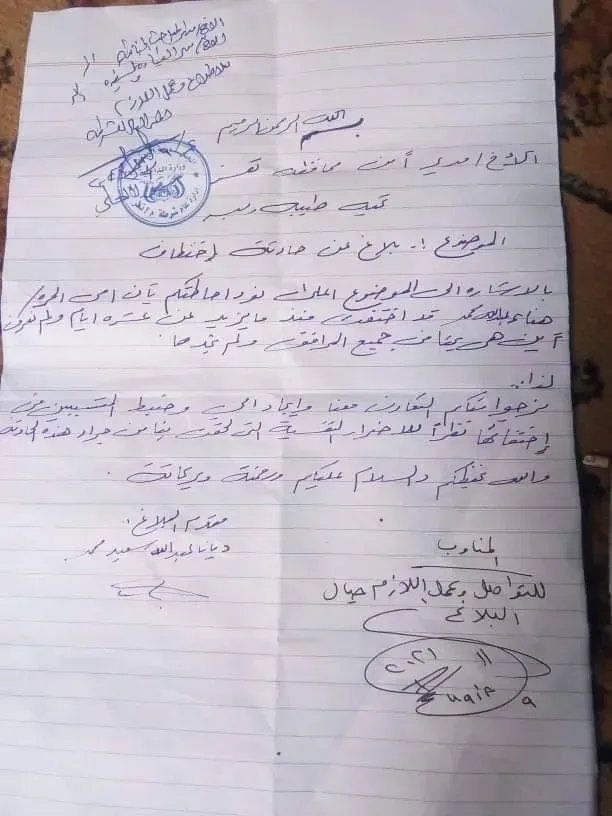 الاخ/ مدير المباحث الجنائية
للاطلاع وعمل اللازم
بسم الله الرحمن الرحيم
الاخ / مدير أمن محافظة تعز
تحية طيبة وبعد
الموضوع :. بلاغ عن حادثة إختطاف
بالاشاره الى الموضوع اعلاه نود احاطتكم بأن امي الحره/
هناء عبدالله محمد قد اختفت منذ مايزيد عن عشره ايام ولم نعرف
أين هي بحثا من جميع المرافق ولم نجدها
لذا..
نرجوا منكم التعاون معنا وإيجاد امي وضبط المتسببين في
إختفائها نظراً للاضرار النفسية التي لحقت بنا من جراء هذه الحادثة
والله يحفظكم والسلام عليكم ورحمة وبركاته.
مقدم البلاغ:
ديانا عبدالله سعيد محمد
المناوب
للتواصل وعمل اللازم حيال
البلاغ
١١ ٢٠٢١